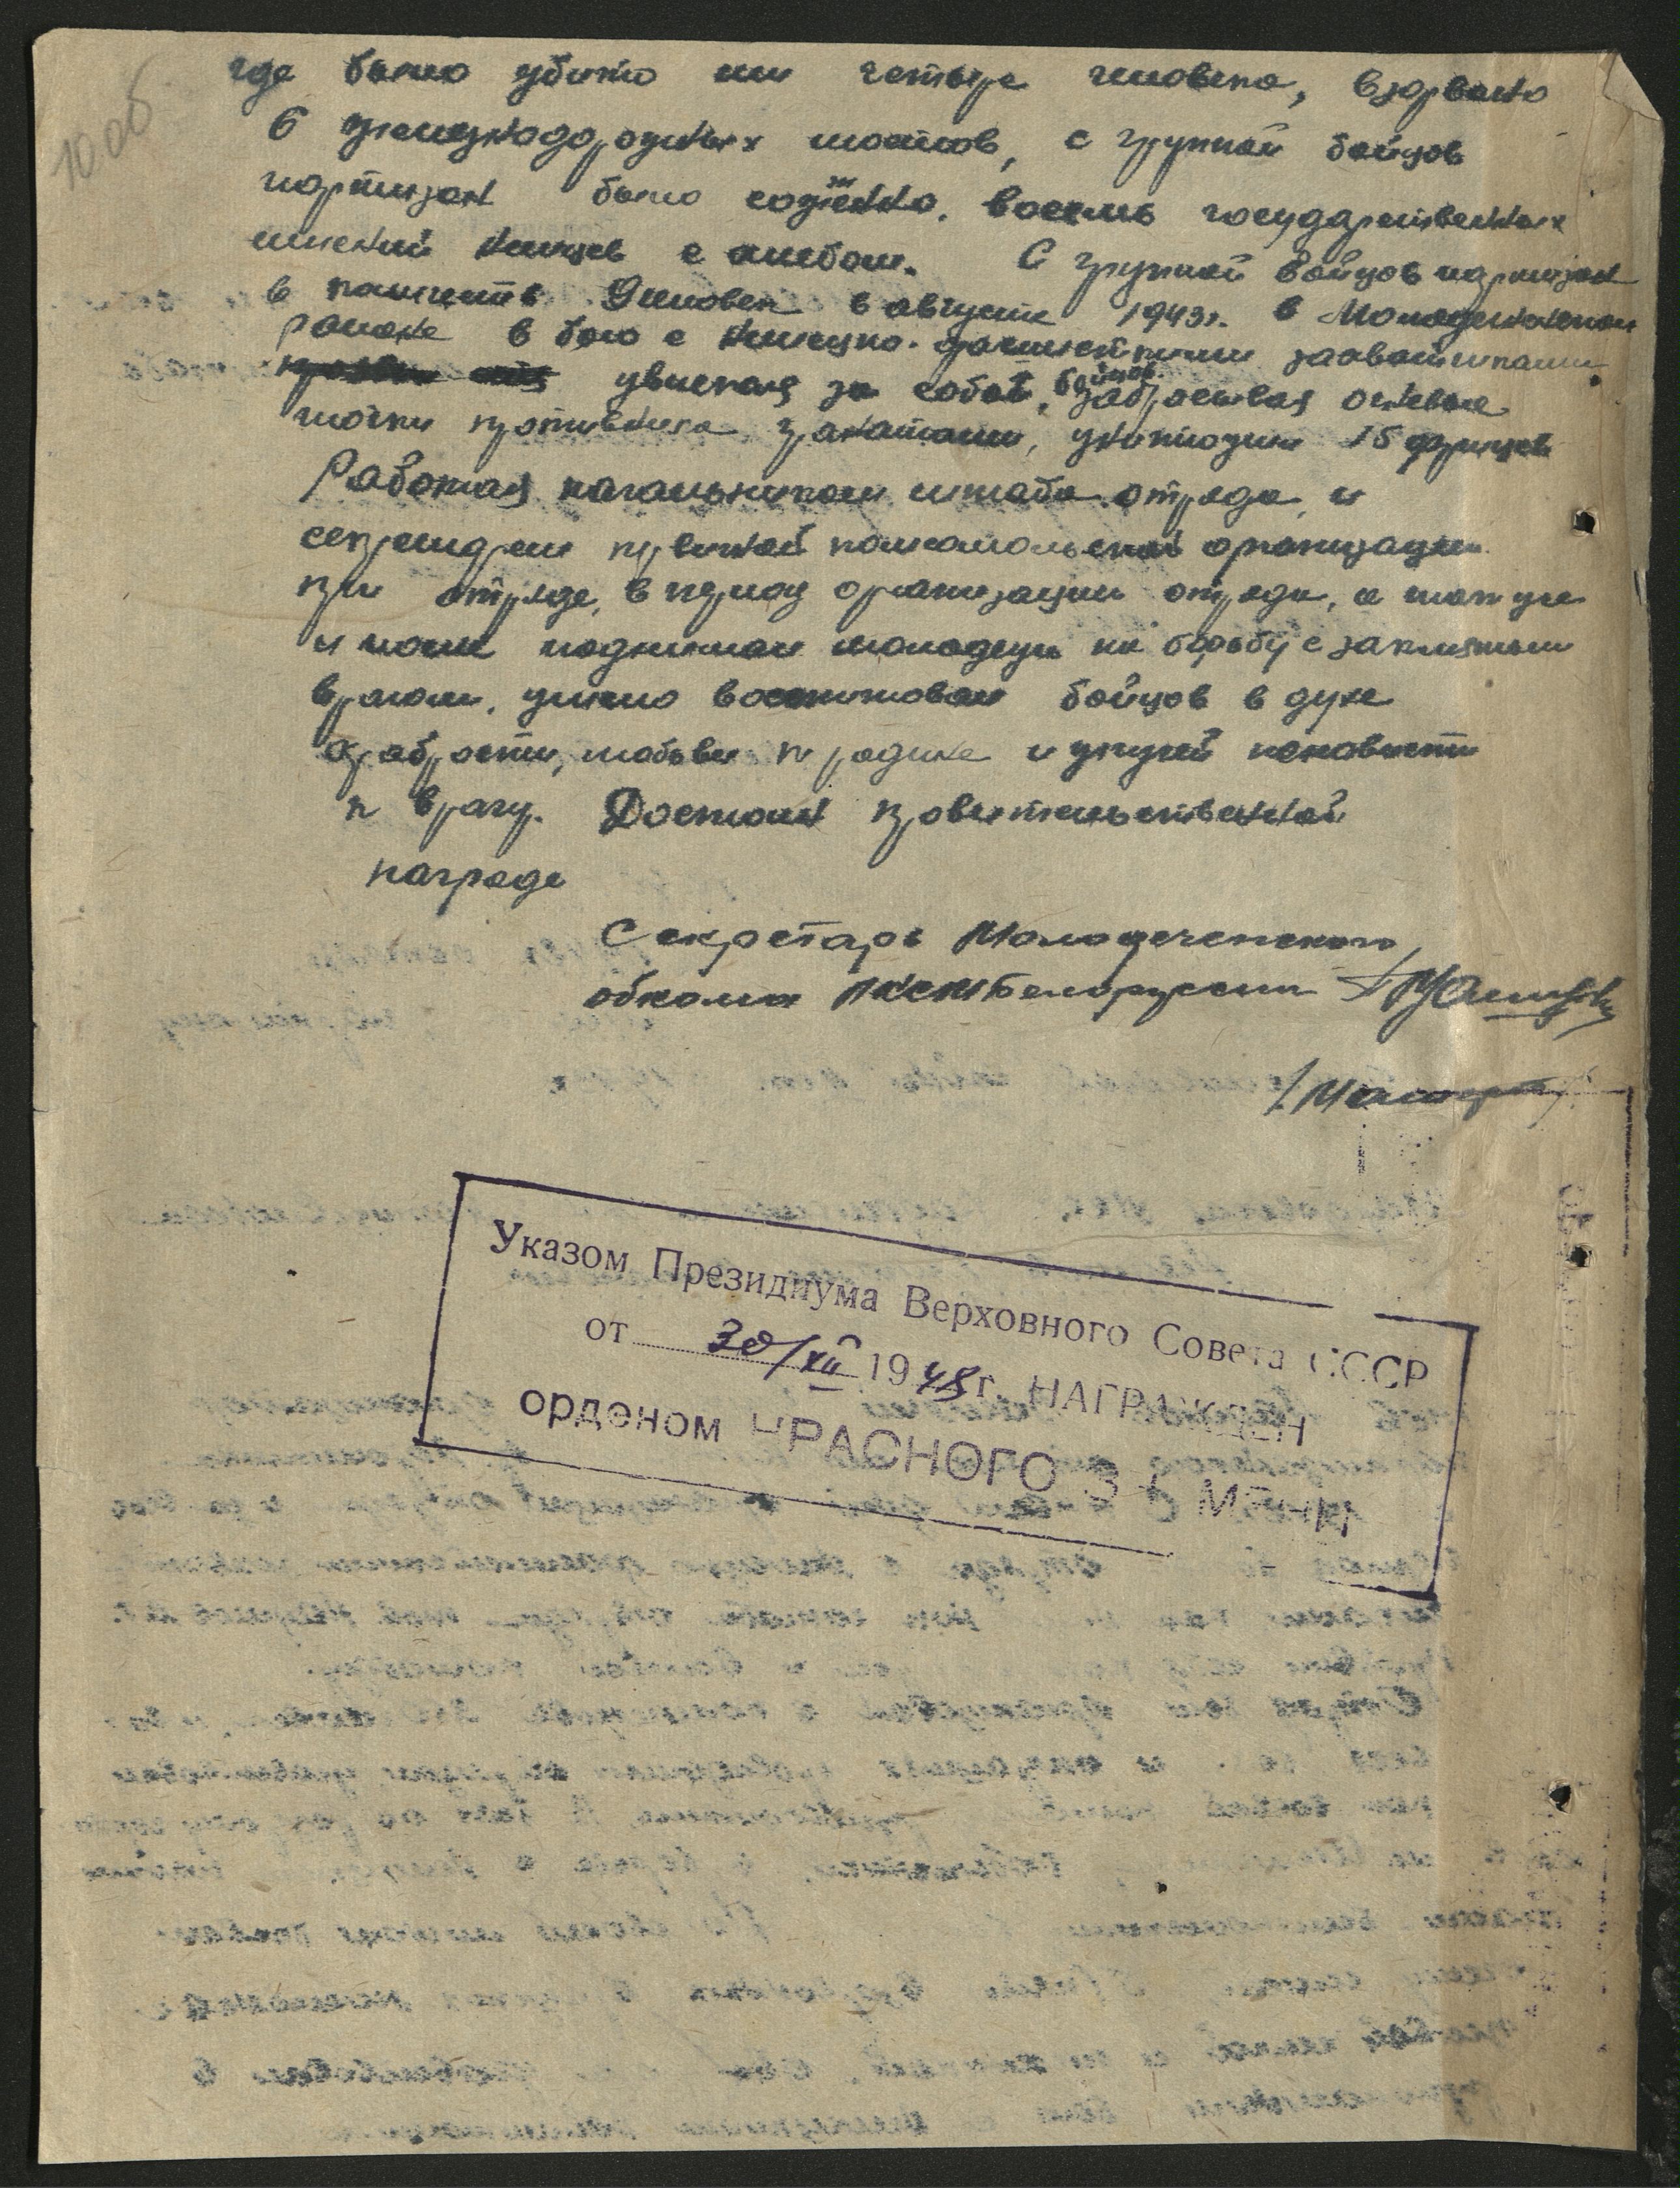 10 об
где было убито им четыре человека, взорвано
6 железнодорожных мостов, с группой бойцов
партизан было сожженно, восемь государственных
имений немцев с хлебом. С группой бойцов партизан
в количеств человек в августе 1943г. в Молодеченском
районе в бою с немецко-фашисткими захватчиками
увлекая за собой, бойцов забрасывая огневые
точки противника гранатами, уничтожил 15 фрицев
Работая начальником штаба отряда, и
секретарем первичной комсомольской организации
при отряде, в период организации отряда, а также
и поднимал молодежь на борьбу с заклятым
врагом, умело воспитовал бойцов в духе
храбрости, любви к родине и жгучей ненависти
к врагу. Достоин правительственной
награде
Секретарь Молодеченского
обкома ЛКСМ Белоруссии
Указом Президиума Верховного Совета СССР
от 30/XII 1948 г. НАГРАЖДЕН
орденом КРАСНОГО ЗНАМЕНИ